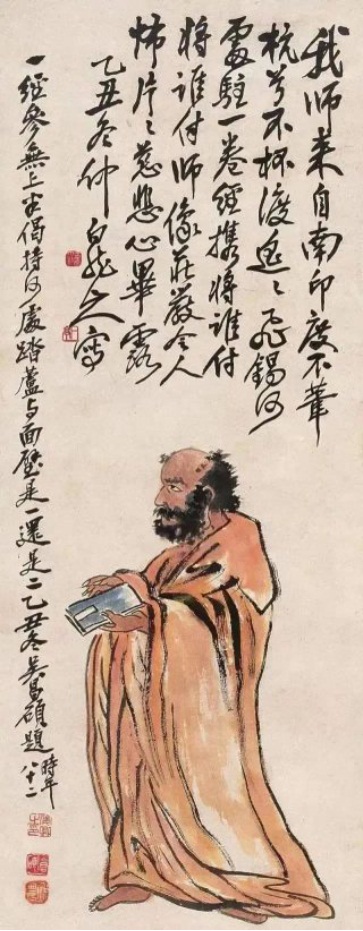 我師來自南印度不葦
杭兮不杯渡飛錫何
處駐一卷經携將誰付
將誰付師像莊嚴令人
怖片〻慈悲心畢露
乙丑冬仲白龍山人寫
一經參無上半偈持何處踏蘆与面壁是一還是二乙丑冬吳昌碩題時年八十二